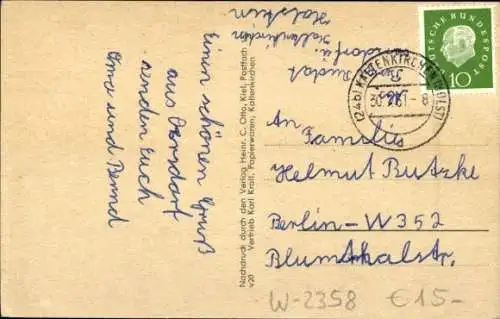 Einen schönen Gruß
aus Oersdorf
senden Euch
Oma und Bernd
Holstein
Kaltenkirchen
Nachdruck durch den Verlag Heinr. C. Otto, Kiel, Postfach
420 Vertrieb Karl Kroll, Papierwaren, Kaltenkirchen
(24b) KALTENKIRCHEN (HOLST)
DEUTSCHE BUNDESPOST
10
An Familie
Helmut Butzke
Berlin-W352
Blumthalstr.
W-2358 €15-